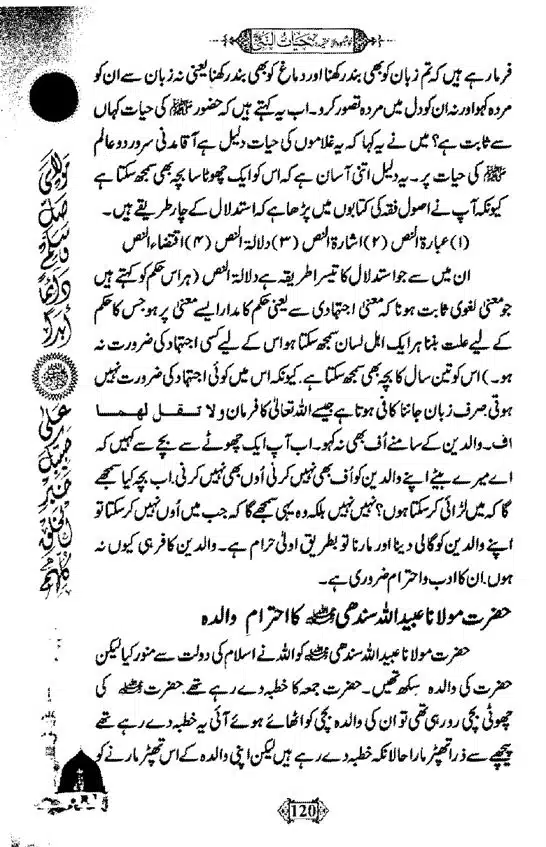 حیات النبی
فرما رہے ہیں کہ تم زبان کو بھی بند رکھنا اور دماغ کو بھی بند رکھنا یعنی نہ زبان سے ان کو
مردہ کہو اور نہ ان کو دل میں مردہ تصور کرو۔ اب یہ کہتے ہیں کہ حضور ﷺ کی حیات کہاں
سے ثابت ہے؟ میں نے یہ کہا کہ یہ غلاموں کی حیات دلیل ہے آقا مدنی سرور دو عالم
ﷺ کی حیات پر۔ یہ دلیل اتنی آسان ہے کہ اس کو ایک چھوٹا سا بچہ بھی سمجھ سکتا ہے
کیونکہ آپ نے اصول فقہ کی کتابوں میں پڑھا ہے کہ استدلال کے چار طریقے ہیں۔
(۱) عبارۃ النص (۲) اشارۃ النص (۳) دلالۃ النص (۴) اقتضاء النص
ان میں سے جو استدلال کا تیسرا طریقہ ہے دلالۃ النص (ہر اس حکم کو کہتے ہیں
جو معنی لغوی ثابت ہو نا کہ معنی اجتہادی سے یعنی حکم کا مدار ایسے معنی پر ہو جس کا حکم
کے لیے علت بننا ہر ایک اہل لسان سمجھ سکتا ہو اس کے لیے کسی اجتہاد کی ضرورت نہ
ہو۔) اس کو تین سال کا بچہ بھی سمجھ سکتا ہے۔ کیونکہ اس میں کوئی اجتہاد کی ضرورت نہیں
ہوتی صرف زبان جاننا کافی ہوتا ہے جیسے اللہ تعالیٰ کا فرمان ولا تقل لهما
اف۔ والدین کے سامنے اُف بھی نہ کہو۔ اب آپ ایک چھوٹے سے بچے سے کہیں کہ
اے میرے بیٹے اپنے والدین کو اُف بھی نہیں کرنی اُوں بھی نہیں کرنی۔ اب بچہ کیا سمجھے
گا کہ میں لڑائی کر سکتا ہوں؟ نہیں نہیں بلکہ وہ یہی سمجھے گا کہ جب میں اُوں نہیں کر سکتا تو
اپنے والدین کو گالی دینا اور مارنا تو بطریق اولیٰ حرام ہے۔ والدین کافر ہی کیوں نہ
ہوں۔ ان کا ادب و احترام ضروری ہے۔
حضرت مولانا عبید اللہ سندھی کا احترام والدہ
حضرت مولانا عبید اللہ سندھی کو اللہ نے اسلام کی دولت سے منور کیا لیکن
حضرت کی والدہ سکھ تھیں۔ حضرت جمعہ کا خطبہ دے رہے تھے۔ حضرت کی
چھوٹی بچی رو رہی تھی تو ان کی والدہ بچی کو اٹھائے ہوئے آئی یہ خطبہ دے رہے تھے
پیچھے سے ذرا تھپڑ مارا حالانکہ خطبہ دے رہے ہیں لیکن اپنی والدہ کے اس تھپڑ مارنے کو
120
مولای صل وسلم دائما ابدا
علی حبیبک خیر الخلق کلهم